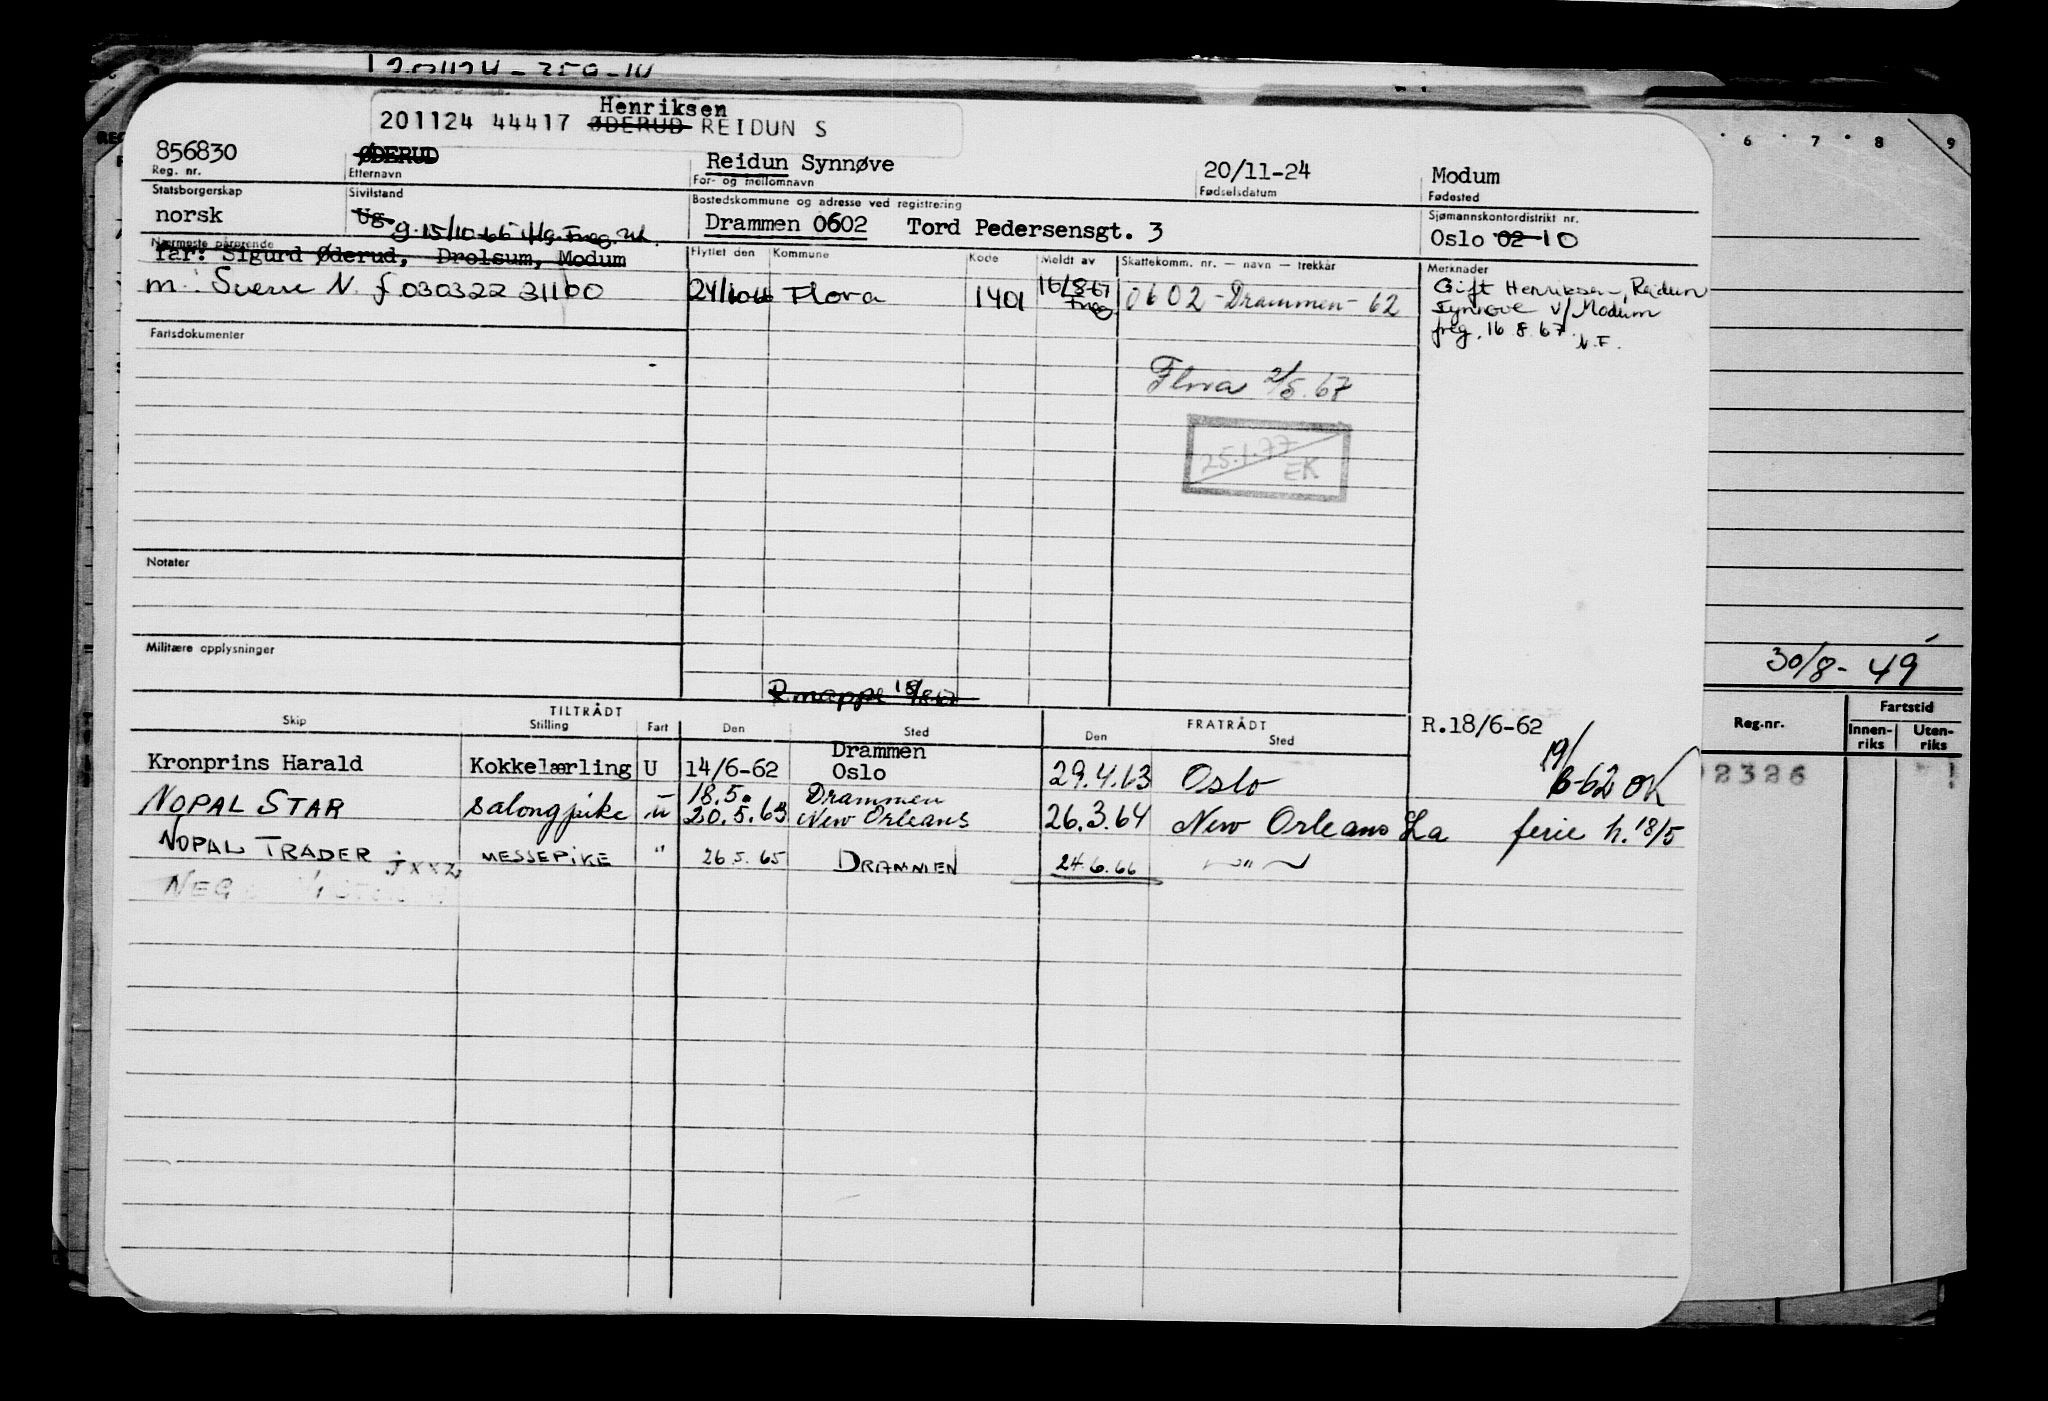 Henriksen
201124 44417 ØDERUD REIDUN S
856830 ØDERUD Reidun Synnøve 20/11-24 Modum
Reg. nr. Etternavn For- og mellomnavn Fødselsdatum Fødested
Statsborgerskap Sivilstand Bostedskommune og adresse ved registrering Sjømannskontordistrikt nr.
norsk Ug. Drammen 0602 Tord Pedersensgt. 3 Oslo 02 10
g. 15/10-66 iflg. Freg.
Nærmeste pårørende
far: Sigurd Øderud, Drolsum, Modum
Flyttet den Kommune Kode Meldt av Skattekomm. nr. — navn — trekkår Merknader
m. Sverre N. f 030322 31100 24/10 66 Flora 1401 16/8-67 Freg 0602 - Drammen - 62
Gift Henriksen, Reidun
Synnøve v/Modum
freg. 16 8. 67. N.F.
Fartsdokumenter
Flora 2/5. 67
25.1.77
EK
Notater
Militære opplysninger
30/8- 49
R mappe
TILTRÅDT FRATRÅDT
Skip Stilling Fart Den Sted Den Sted
R.18/6-62
19/6-62 OK
Kronprins Harald Kokkelærling U 14/6-62 Drammen Oslo 29.4.63 Oslo
NOPAL STAR salongpike u 18.5. 20.5.63 Drammen New Orleans 26.3.64 New Orleans La ferie h. 18/5
NOPAL TRADER jxxz MESSEPIKE " 26.5.65 DRAMMEN 24.6.66 —"—
Reg.nr. Fartstid
Innen-riks Uten-riks
2326
6 7 8 9